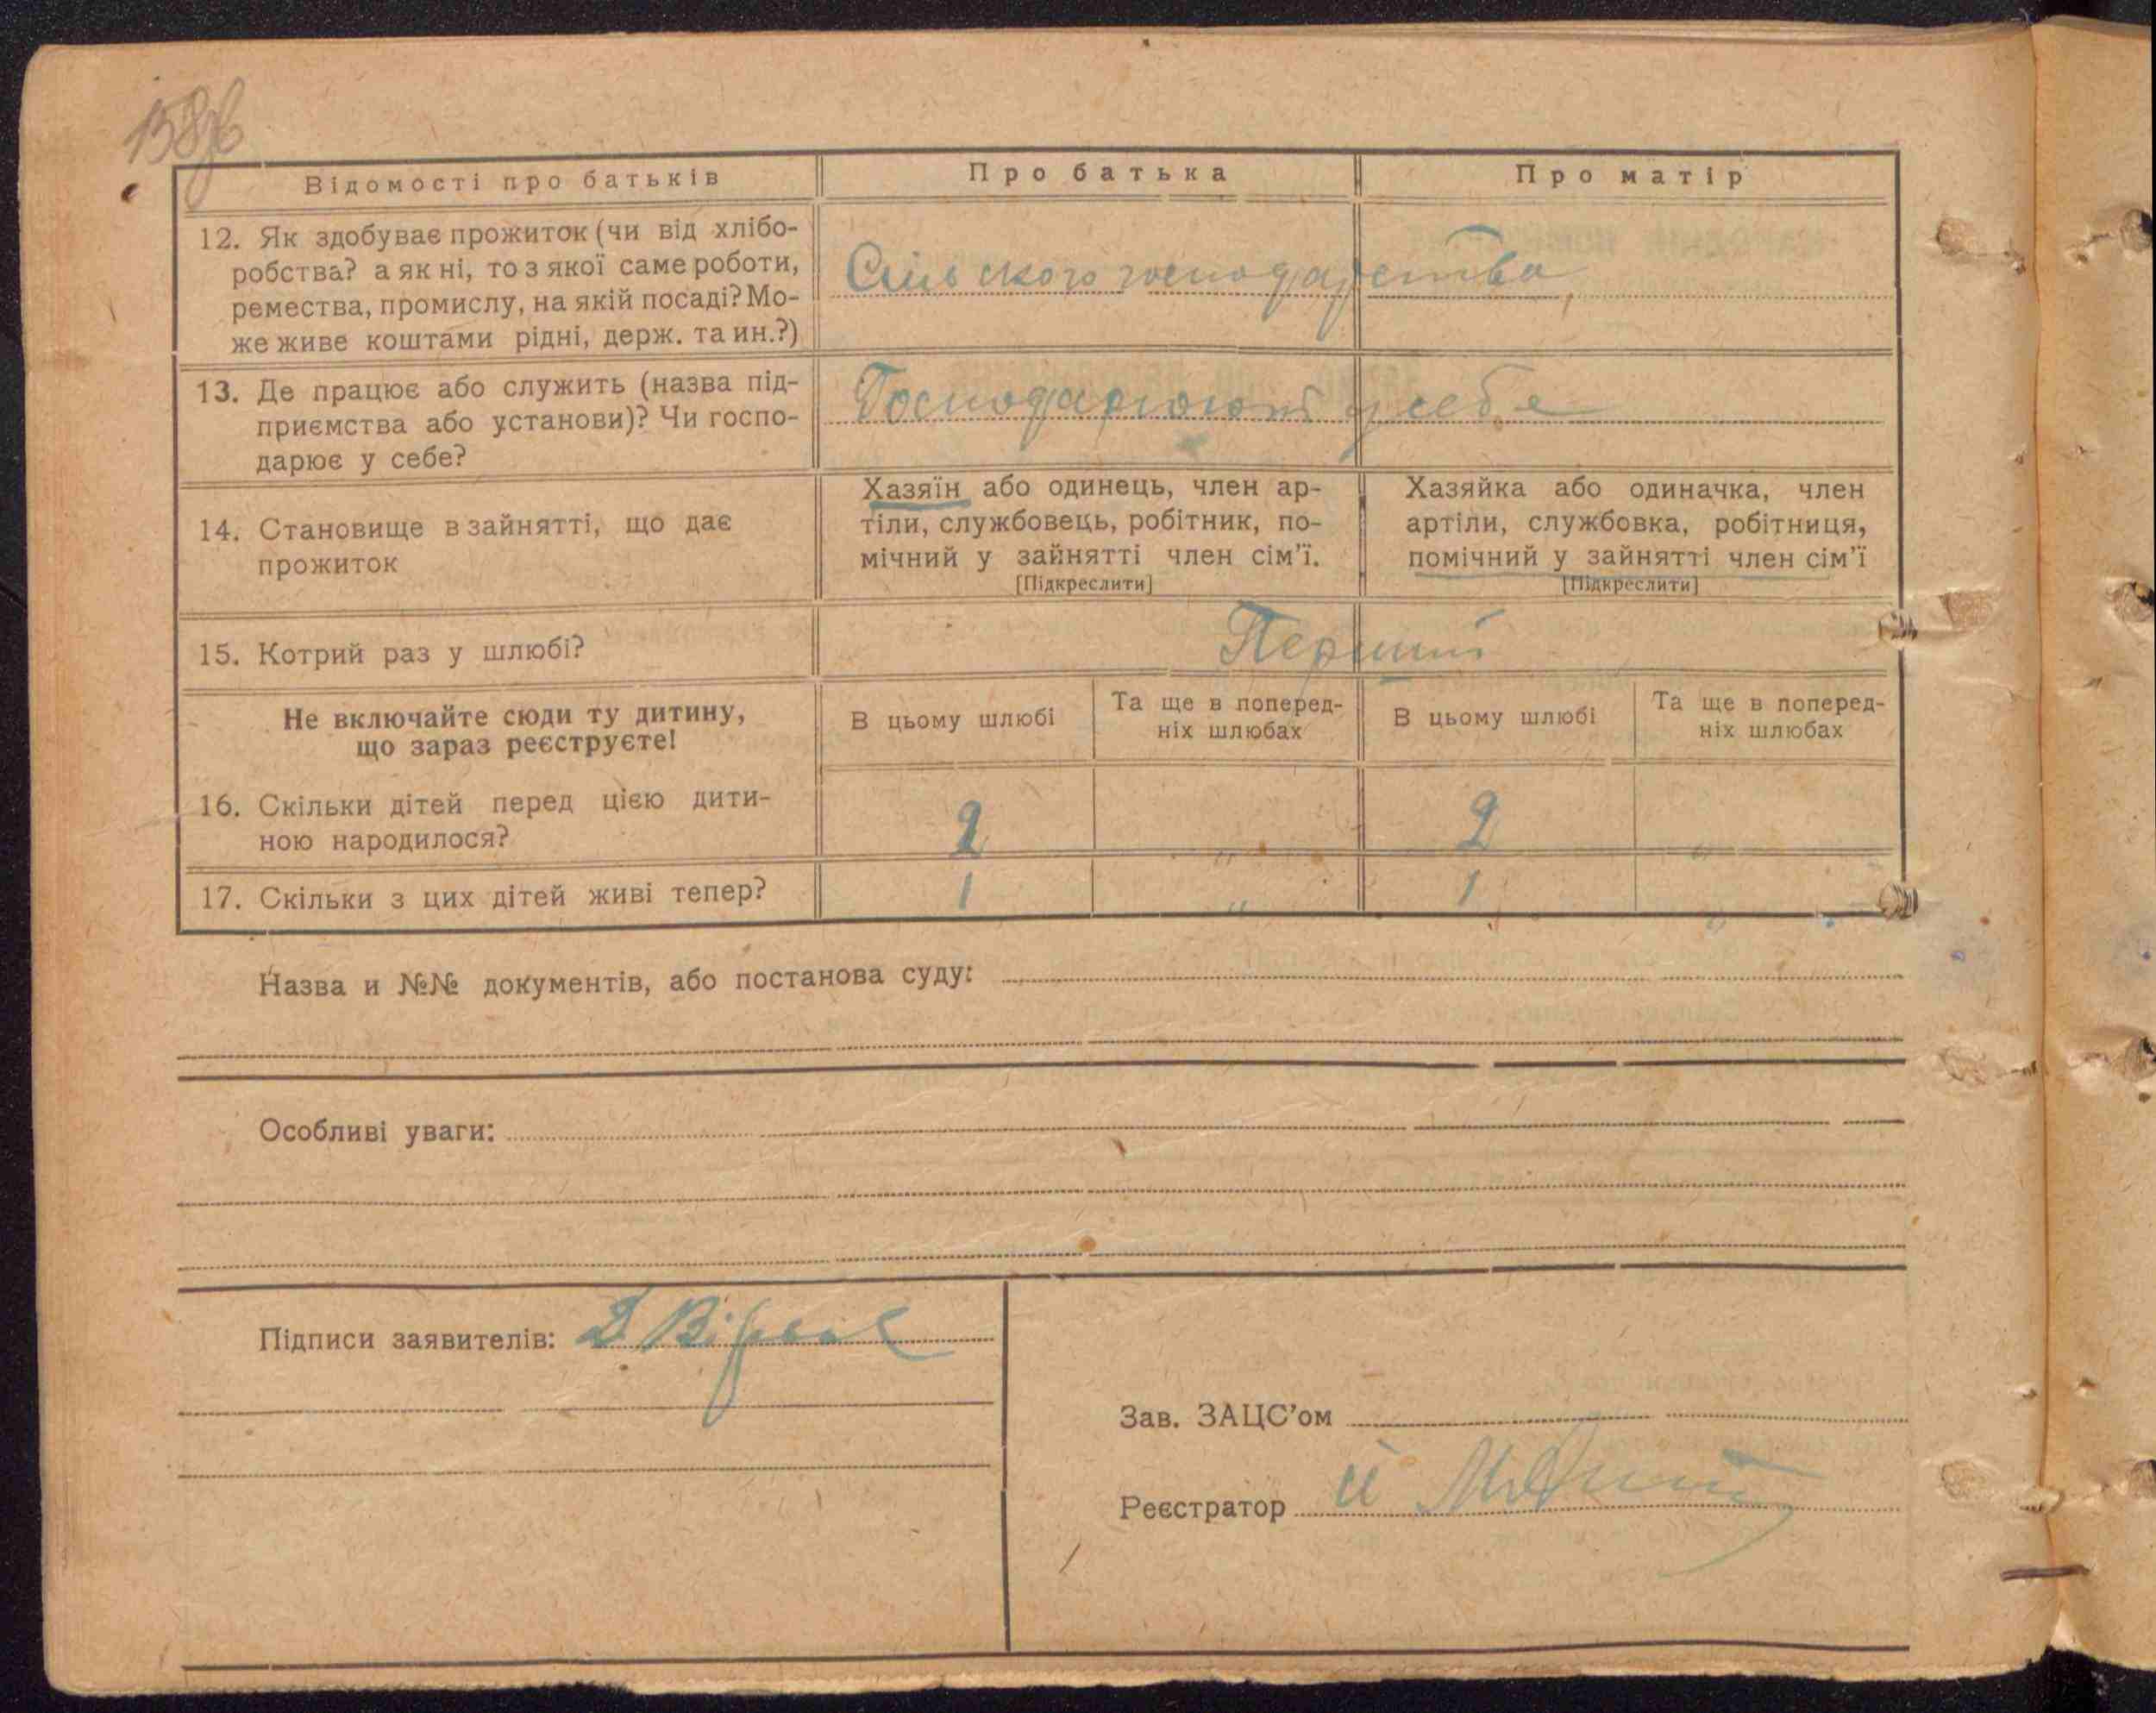 Відомості про батьків
Про батька
Про матір
12. Як здобуває прожиток (чи від хлібо-
робства? а як ні, то з якої саме роботи,
ремества, промислу, на якій посаді? Мо-
же живе коштами рідні, держ. та ин.?)
Сільского господарства
13. Де працює або служить (назва під-
приємства або установи)? Чи госпо-
дарює у себе?
Господарюют у себе
14. Становище в зайнятті, що дає
прожиток
Хазяїн або одинець, член ар-
тіли, службовець, робітник, по-
мічний у зайнятті член сім'ї.
[Підкреслити]
Хазяйка або одиначка, член
артіли, службовка, робітниця,
помічний у зайнятті член сім'ї
[Підкреслити]
15. Котрий раз у шлюбі?
Перший
Не включайте сюди ту дитину,
що зараз реєструєте!
В цьому шлюбі
Та ще в поперед-
ніх шлюбах
В цьому шлюбі
Та ще в поперед-
ніх шлюбах
16. Скільки дітей перед цією дити-
ною народилося?
2 " 2 "
17. Скільки з цих дітей живі тепер?
1 " 1 "
Назва и №№ документів, або постанова суду:
Особливі уваги:
Підписи заявителів:
Зав. ЗАЦС'ом
Реєстратор